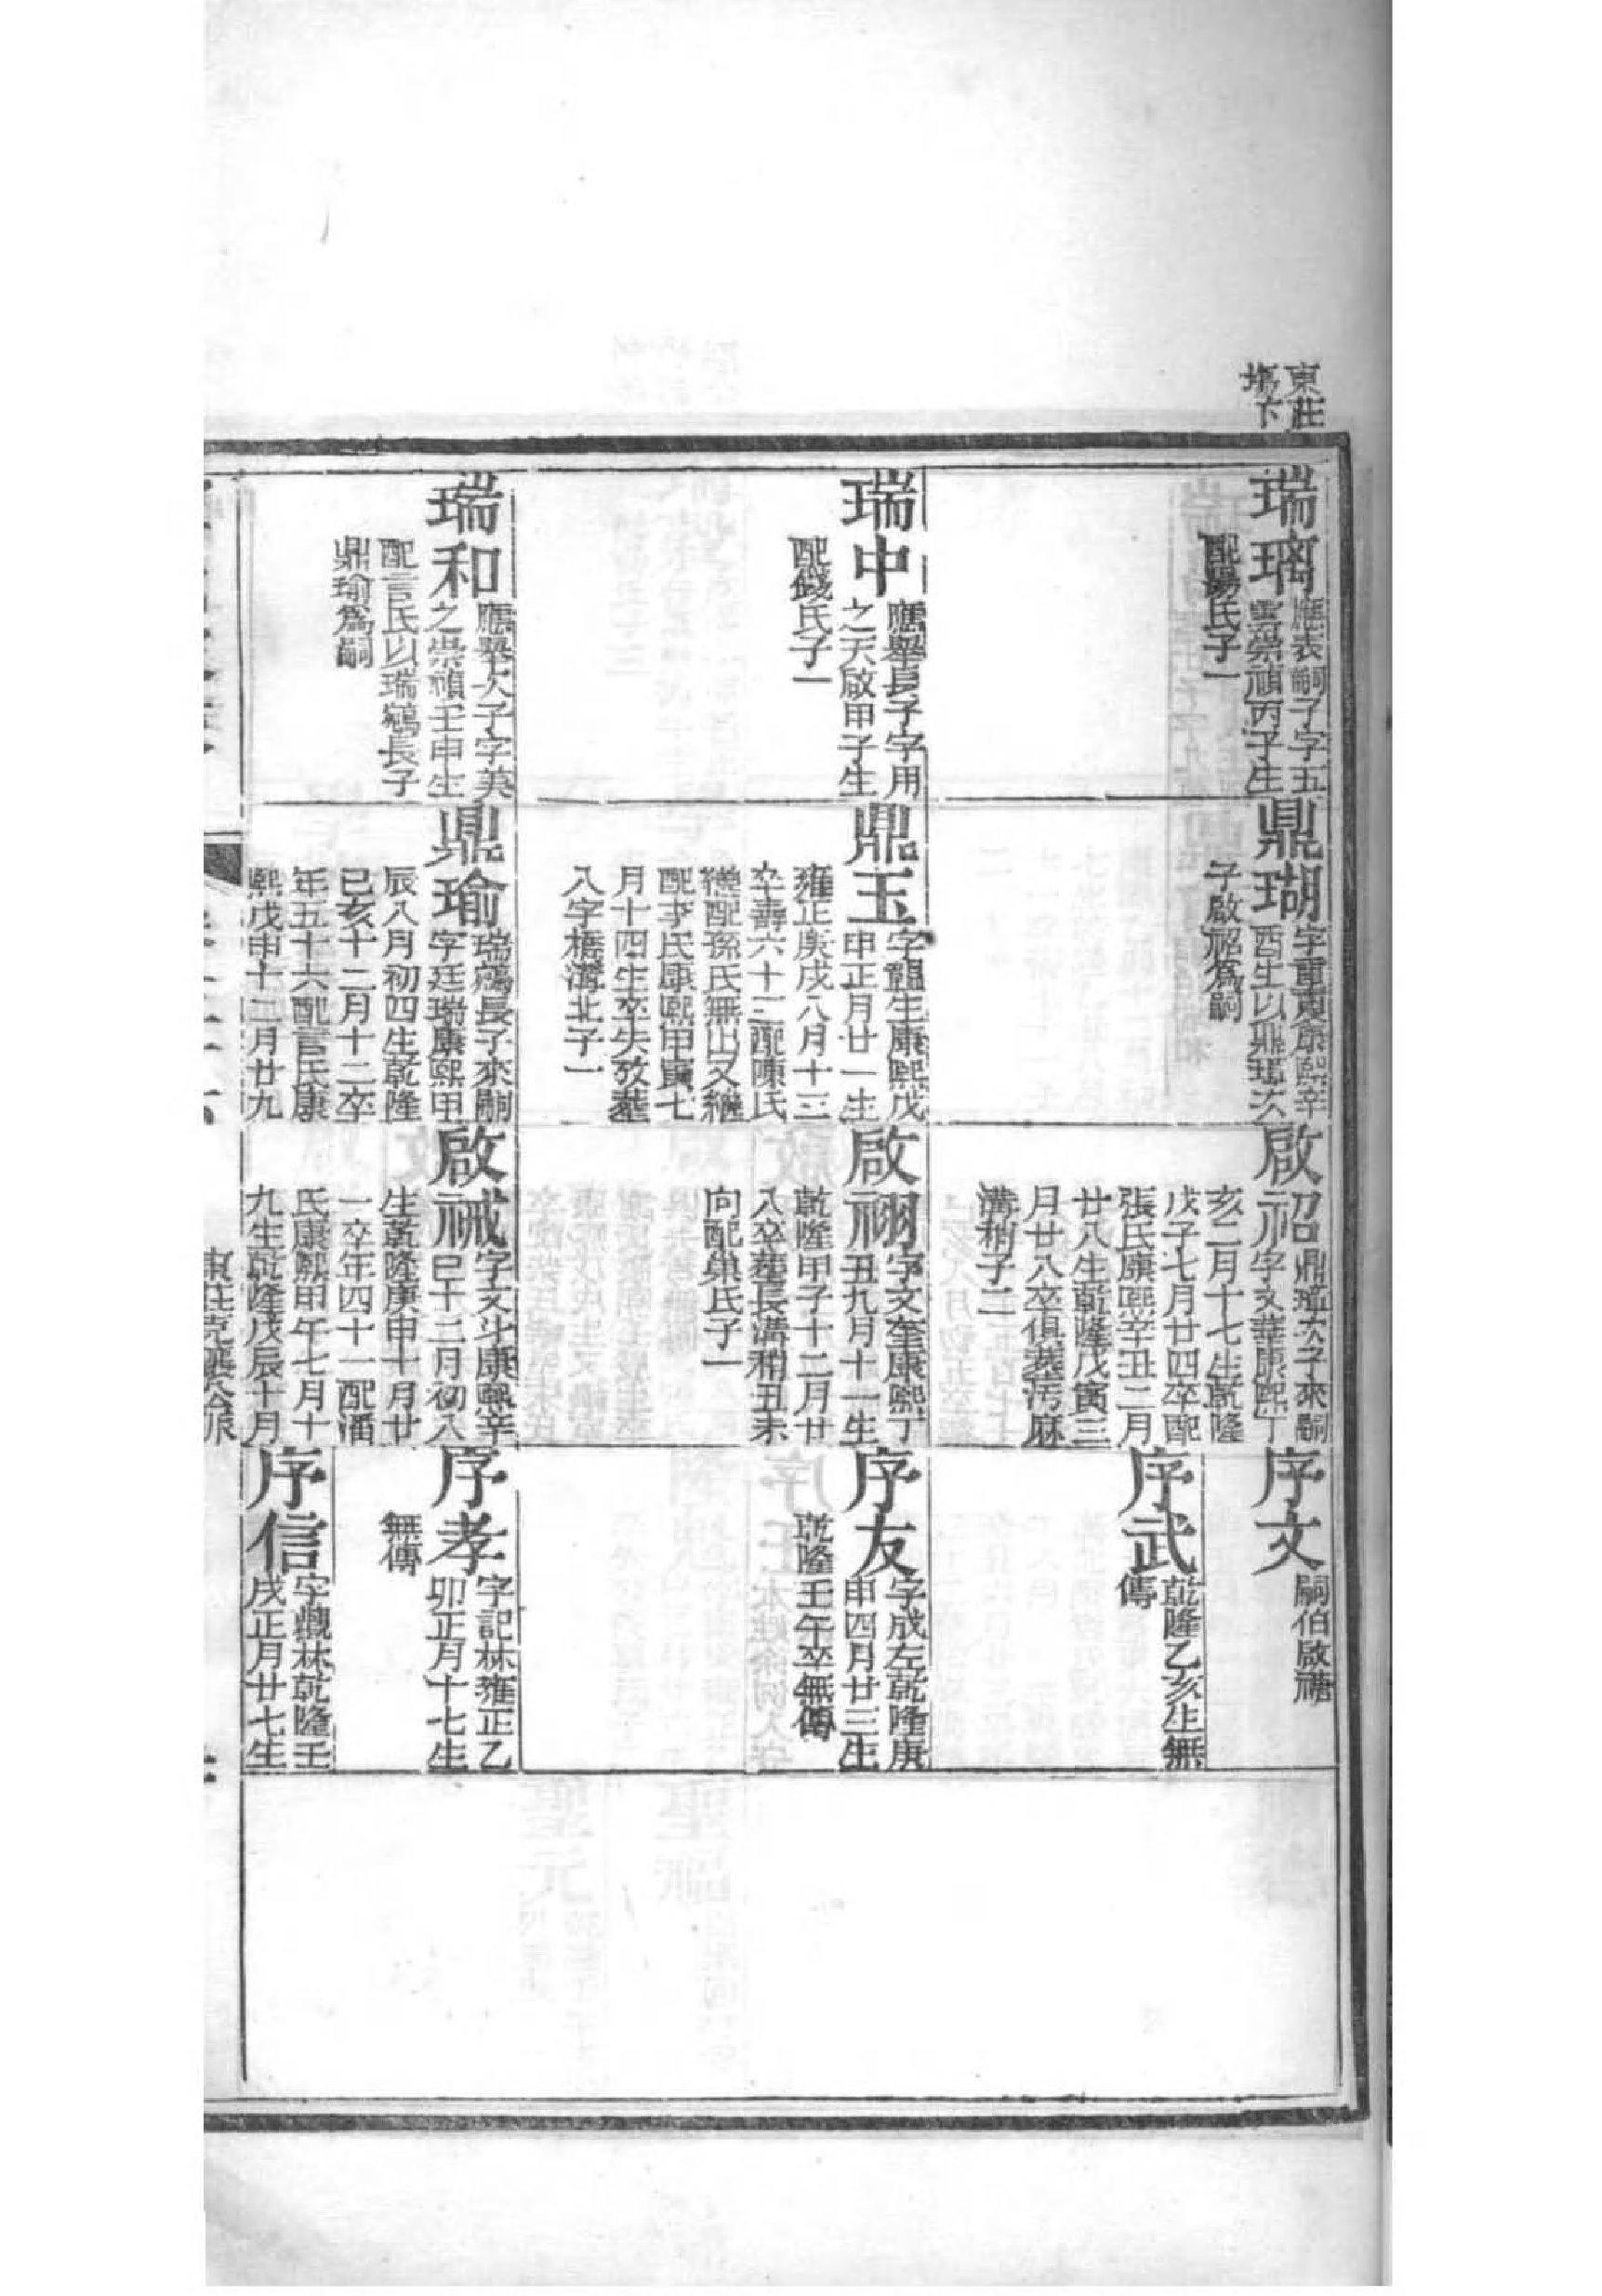 東莊
塲下
瑞璃
應表嗣子字五
雲崇禎丙子生
配楊氏子一
瑞中
應舉長子字用
之天啟甲子生
配錢氏子一
瑞和
應舉次子字英
之崇禎壬申生
配言氏以瑞鷁長子
鼎瑜為嗣
鼎瑚
字重夏康熙辛
酉生以鼎瑤次
子啟祒為嗣
鼎玉
字龍生康熙戊
申正月廿一生
雍正庚戌八月十三
卒壽六十三配陳氏
繼配孫氏無出又繼
配李氏康熙甲寅七
月十四生卒失攷葬
八字橋溝北子一
鼎瑜
瑞鷁長子來嗣
字廷瑞康熙甲
辰八月初四生乾隆
己亥十二月十二卒
年五十六配言氏康
熙戊申十二月廿九
啟祒
鼎瑤次子來嗣
字文華康熙丁
亥二月十七生乾隆
戊子七月廿四卒配
張氏康熙辛丑二月
廿八生乾隆戊寅三
月廿八卒俱葬污麻
溝稍子二
啟祤
字文奎康熙丁
丑九月十一生
乾隆甲子十二月廿
八卒葬長溝稍丑未
向配巢氏子一
啟祴
字文斗康熙辛
巳十二月初八
生乾隆庚申十月廿
一卒年四十一配潘
氏康熙甲午七月十
九生乾隆戊辰十月
序文
嗣伯啟禟
序武
乾隆乙亥生無
傳
序友
字成左乾隆庚
申四月廿三生
乾隆壬午卒無傳
序孝
字記林雍正乙
卯正月十七生
無傳
序信
字巍林乾隆壬
戌正月廿七生